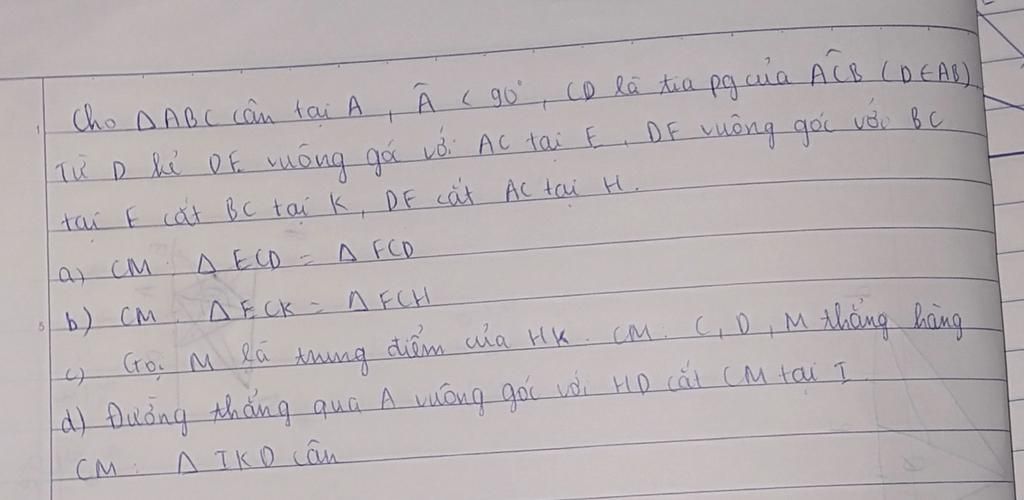 Cho ΔABC cân tại A, Â < 90°, CD là tia pg của ACB (D∈AB)
Từ D kẻ DE vuông góc với AC tại E, DF vuông góc với BC
tại F cắt BC tại K, DF cắt AC tại H.
a) CM: Δ ECD = Δ FCD
b) CM Δ ECK = Δ FCH
c) Gọi M là trung điểm của HK. CM: C, D, M thẳng hàng
d) Đường thẳng qua A vuông góc với HD cắt CM tại I
CM: Δ IKD cân